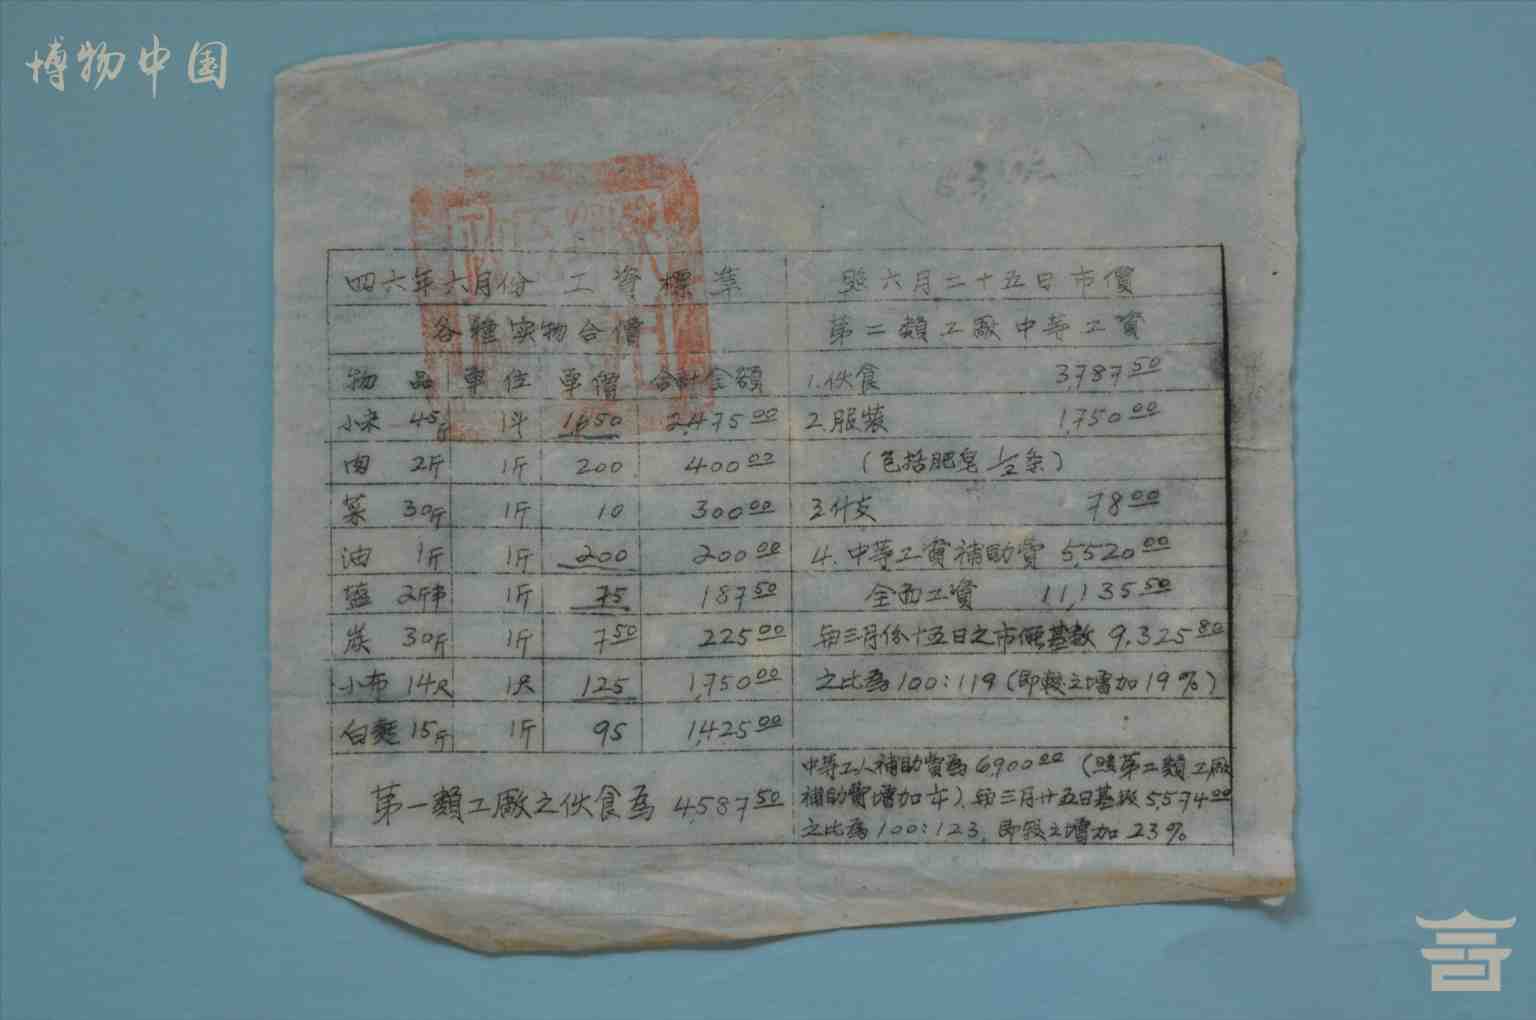 博物中国
四六年六月份 工資標準
照六月二十五日市價
各種实物合價
第二類工廠中等工資
物品 單位 單價 合計金額
小米 45斤 1斗 1,650 2,475.00
肉 2斤 1斤 200 400.00
菜 30斤 1斤 10 300.00
油 1斤 1斤 200 200.00
盐 2斤半 1斤 75 187.50
炭 30斤 1斤 7.50 225.00
小布 14尺 1尺 125 1,750.00
白麵 15斤 1斤 95 1,425.00
第一類工廠之伙食為 4,587.50
1.伙食 3,787.50
2.服裝 1,750.00
(包括肥皂 1/2条)
3.什支 78.00
4.中等工資補助費 5,520.00
全面工資 11,135.50
與三月份十五日之市價基數 9,325.80
之比為100:119(即較之增加19%)
中等工人補助費為6,900.00(照第二類工廠
補助費增加),與三月廿五日基数5,574.00
之比為100:123,即較之增加23%